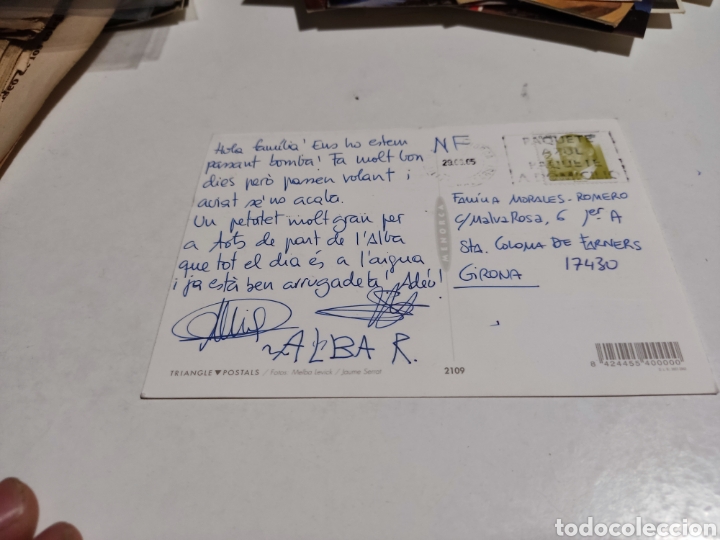 Hola família! Ens ho estem
passant bomba! Fa molt bon
dies però passen volant i
aviat se'ns acaba.
Un petotet molt gran per
a tots de part de l'Alba
que tot el dia és a l'aigua
i ja està ben arrugadeta! Adéu!
ALBA R.
TRIANGLE ▼ POSTALS / Fotos: Melba Levick / Jaume Serrat
2109
MENORCA
NF
PAQUETE
AZUL
Família MORALES-ROMERO
c/ Malva Rosa, 6 1er A
Sta. COLOMA DE FARNERS
17430
GIRONA
8 424455 400000
todocoleccion